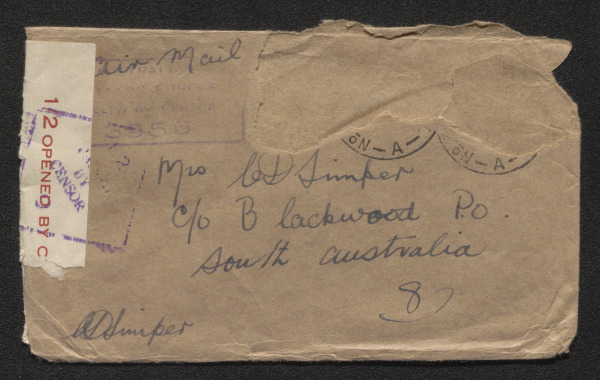 air Mail
3956
1/2 OPENED BY C
BY
CENSOR
6N-A-
6N-A-
Mrs CD Simper
C/o Blackwood P.O.
South Australia
8
CD Simper